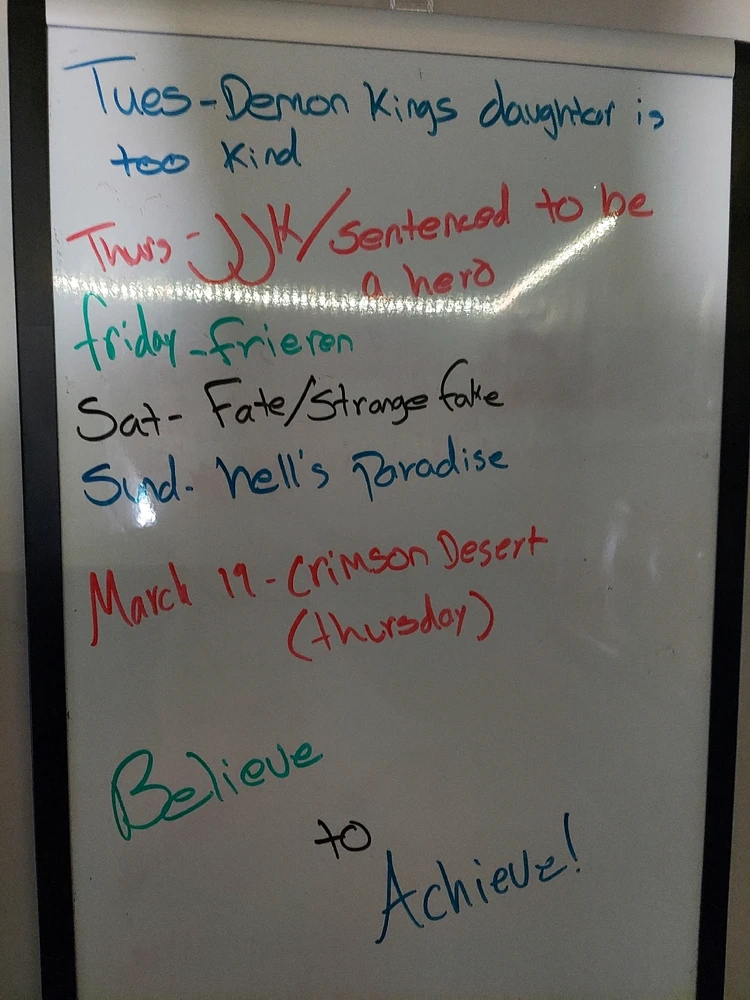 Tues-Demon Kings daughter is
too Kind
Thurs-JJK/sentenced to be
a hero
friday-frieren
Sat- Fate/Strange fake
Sund- hell's Paradise
March 19-Crimson Desert
(thursday)
Believe
to
Achieve!